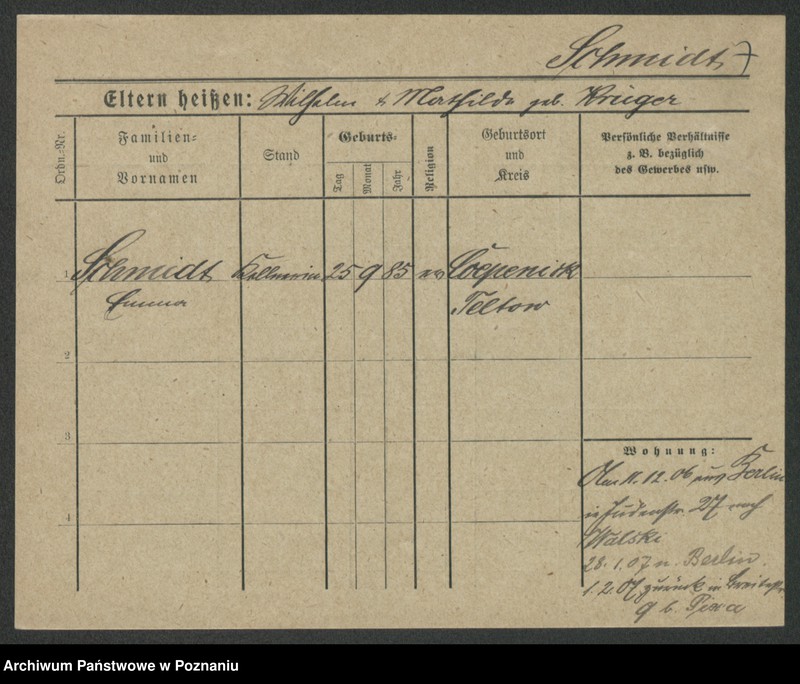 Schmidt
Eltern heißen: Wilhelm & Mathilde geb. Krüger
Ordn.-Nr.
Familien- und Vornamen
Stand
Geburts-
Tag
Monat
Jahr
Religion
Geburtsort und Kreis
Persönliche Verhältnisse z. B. bezüglich des Gewerbes usw.
1 Schmidt Kellnerin 25 9 85 ev Cöepenick
Emma Teltow
2
3
4
Wohnung:
Am 11. 12. 06 aus Berlin
in Judenstr. 27 nach
Walski
28. 1. 07 n. Berlin.
1. 2. 07 zurück in Breitestr.
9 b.
Archiwum Państwowe w Poznaniu